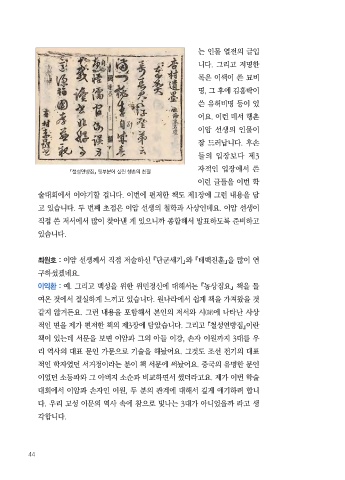 는 인물 열전의 글입
니다. 그리고 저명한
목은 이색이 쓴 묘비
명, 그 후에 김흠락이
쓴 유허비명 등이 있
어요. 이런 데서 행촌
이암 선생의 인물이
잘 드러납니다. 후손
들의 입장보다 제3
자적인 입장에서 쓴
이런 글들을 이번 학
『철성연방집』 일부분이 실린 행촌의 친필
술대회에서 이야기할 겁니다. 이번에 편저한 책도 제1장에 그런 내용을 담
고 있습니다. 두 번째 초점은 이암 선생의 철학과 사상인데요. 이암 선생이
직접 쓴 저서에서 많이 찾아낼 게 있으니까 종합해서 발표하도록 준비하고
있습니다.
최원호 : 이암 선생께서 직접 저술하신 『단군세기』와 『태백진훈』을 많이 연
구하셨겠네요.
이익환 : 예. 그리고 백성을 위한 위민정신에 대해서는 『농상집요』 책을 들
여온 것에서 절실하게 느끼고 있습니다. 원나라에서 쉽게 책을 가져왔을 것
같지 않거든요. 그런 내용을 포함해서 본인의 저서와 시(詩)에 나타난 사상
적인 면을 제가 편저한 책의 제3장에 담았습니다. 그리고 『철성연방집』이란
책이 있는데 서문을 보면 이암과 그의 아들 이강, 손자 이원까지 3대를 우
리 역사의 대표 문인 가문으로 기술을 해놨어요. 그것도 조선 전기의 대표
적인 학자였던 서거정이라는 분이 책 서문에 써놨어요. 중국의 유명한 문인
이었던 소동파와 그 아버지 소순과 비교하면서 썼더라고요. 제가 이번 학술
대회에서 이암과 손자인 이원, 두 분의 관계에 대해서 길게 얘기하려 합니
다. 우리 고성 이문의 역사 속에 참으로 빛나는 3대가 아니었을까 라고 생
각합니다.
44